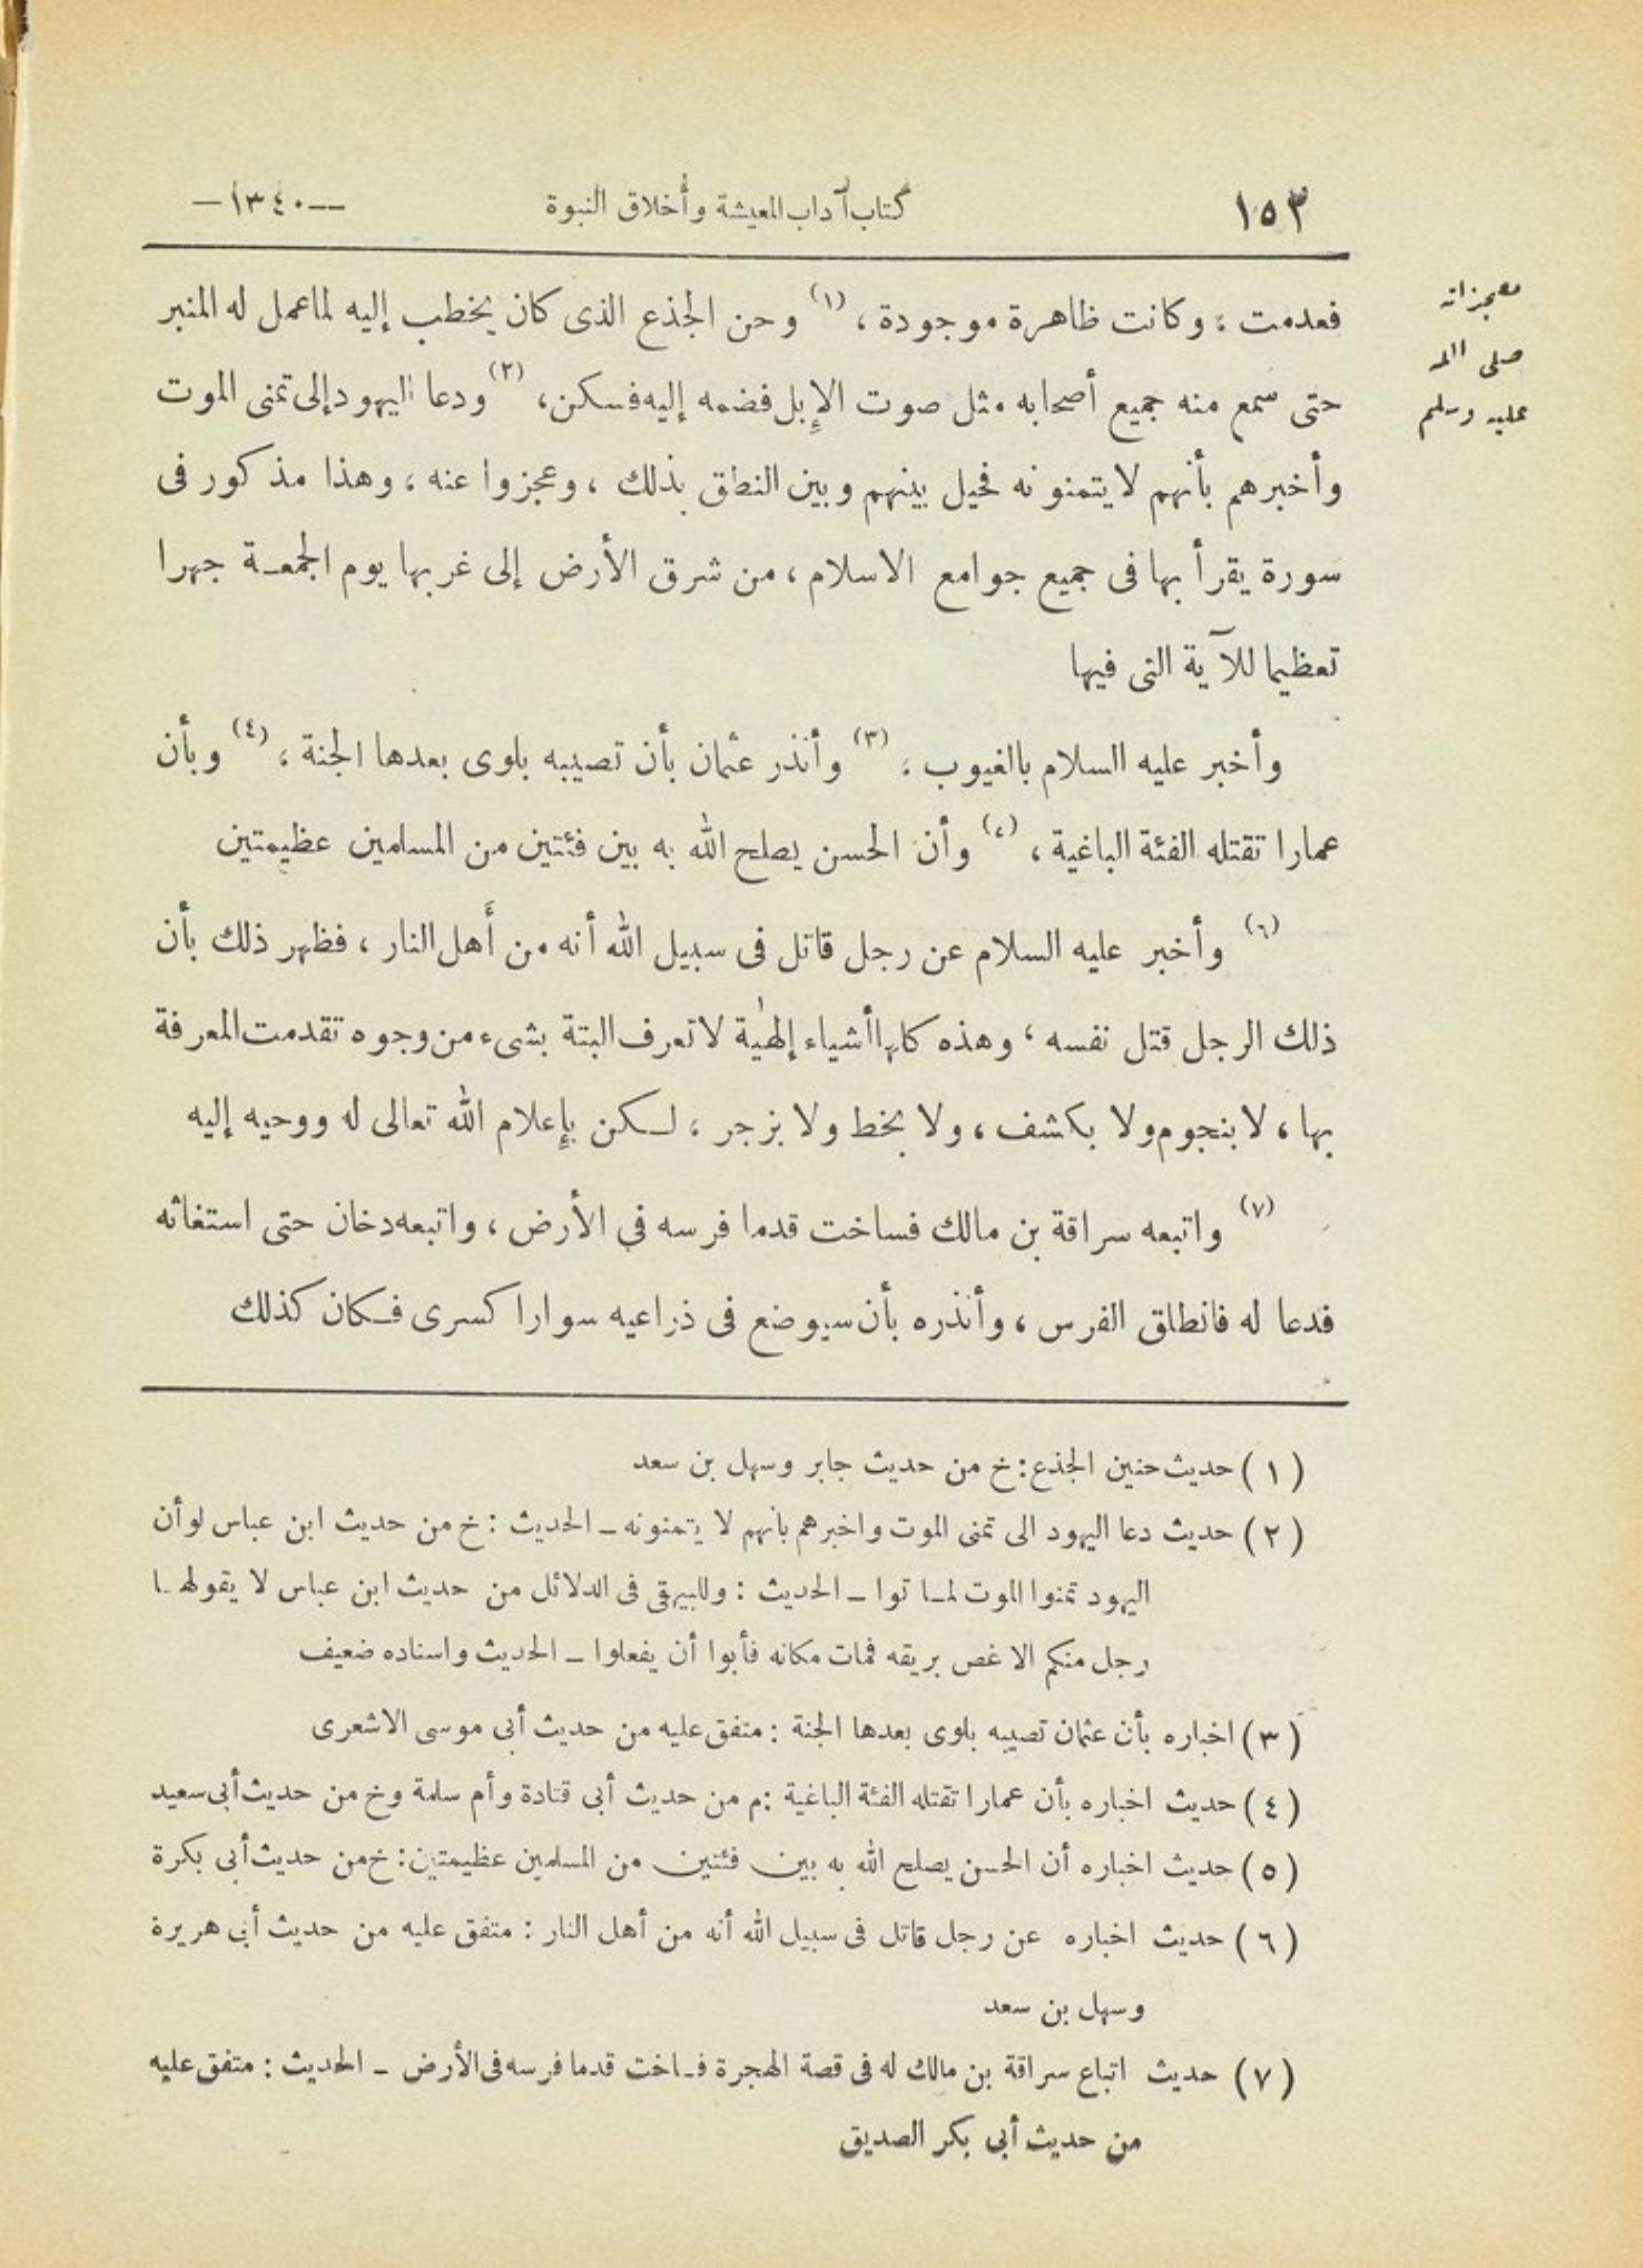 ١٥٣ كتاب آداب المعيشة وأخلاق النبوة —١٣٤٠—
معجزاته
صلى الله
عليه وسلم
فعدمت ؛ وكانت ظاهرة موجودة ، (١) وحن الجذع الذى كان يخطب إليه لما عمل له المنبر
حتى سمع منه جميع أصحابه مثل صوت الإبل فضمه إليه فسكن، (٢) ودعا اليهود إلى تمنى الموت
وأخبرهم بأنهم لا يتمنونه فحيل بينهم وبين النطق بذلك ، وعجزوا عنه ، وهذا مذكور فى
سورة يقرأ بها فى جميع جوامع الاسلام ، من شرق الأرض إلى غربها يوم الجمعـة جهرا
تعظيما للآية التى فيها
وأخبر عليه السلام بالغيوب ؛ (٣) وأنذر عثمان بأن تصيبه بلوى بعدها الجنة ؛ (٤) وبأن
عمارا تقتله الفئة الباغية ، (٥) وأن الحسن يصلح الله به بين فئتين من المسلمين عظيمتين
(٦) وأخبر عليه السلام عن رجل قاتل فى سبيل الله أنه من أهل النار ، فظهر ذلك بأن
ذلك الرجل قتل نفسه ؛ وهذه كلها أشياء إلهٰية لا تعرف البتة بشىء من وجوه تقدمت المعرفة
بها ، لا بنجوم ولا بكشف ، ولا بخط ولا بزجر ؛ لـكن بإعلام الله تعالى له ووحيه إليه
(٧) واتبعه سراقة بن مالك فساخت قدما فرسه فى الأرض ، واتبعه دخان حتى استغاثه
فدعا له فانطلق الفرس ، وأنذره بأن سيوضع فى ذراعيه سوارا كسرى فـكان كذلك
( ١ ) حديث حنين الجذع : خ من حديث جابر وسهل بن سعد
( ٢ ) حديث دعا اليهود الى تمنى الموت واخبرهم بانهم لا يتمنونه ـ الحديث : خ من حديث ابن عباس لو أن
اليهود تمنوا الموت لمـاتوا ـ الحديث : وللبيهقى فى الدلائل من حديث ابن عباس لا يقولهـا
رجل منكم الا غص بريقه فمات مكانه فأبوا أن يفعلوا ـ الحديث واسناده ضعيف
( ٣ ) اخباره بأن عثمان تصيبه بلوى بعدها الجنة : متفق عليه من حديث أبى موسى الاشعرى
( ٤ ) حديث اخباره بأن عمارا تقتله الفئة الباغية : م من حديث أبى قتادة وأم سلمة وخ من حديث أبى سعيد
( ٥ ) حديث اخباره أن الحسن يصلح الله به بين فئتين من المسلمين عظيمتين : خ من حديث أبى بكرة
( ٦ ) حديث اخباره عن رجل قاتل فى سبيل الله أنه من أهل النار : متفق عليه من حديث أبى هريرة
وسهل بن سعد
( ٧ ) حديث اتباع سراقة بن مالك له فى قصة الهجرة فـاخت قدما فرسه فى الأرض ـ الحديث : متفق عليه
من حديث أبى بكر الصديق